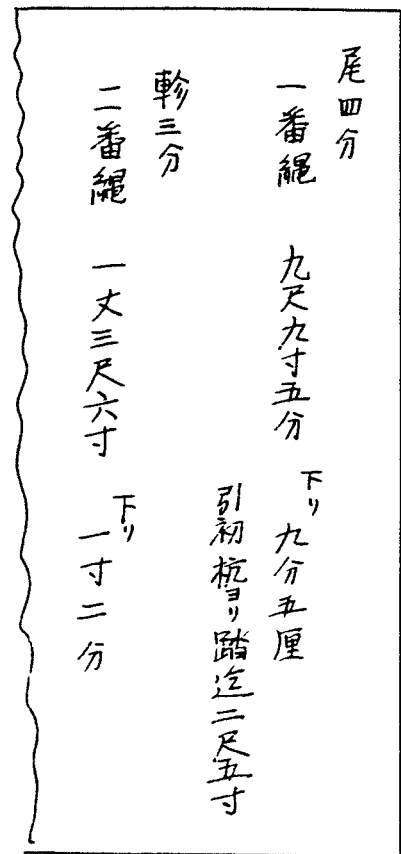 尾四分
一番縄 九尺九寸五分 下リ 九分五厘
引初杭ヨリ踏迄二尺五寸
軫三分
二番縄 一丈三尺六寸 下リ 一寸二分